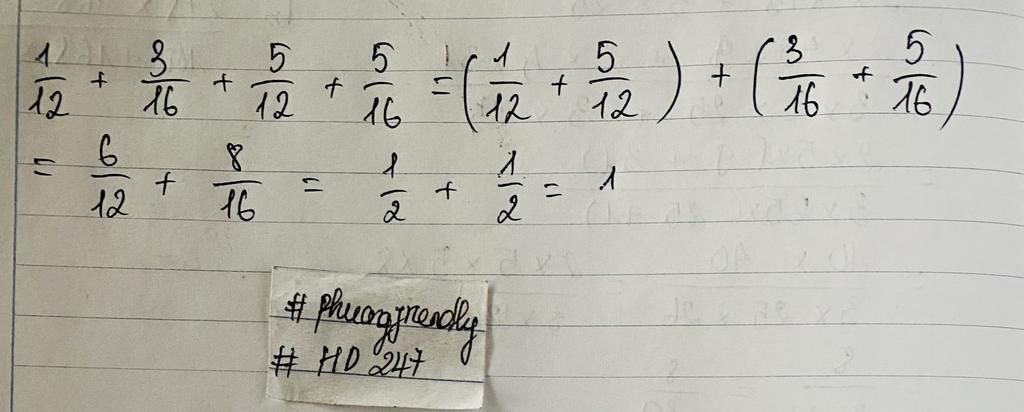 1/12 + 3/16 + 5/12 + 5/16 = (1/12 + 5/12) + (3/16 + 5/16)
= 6/12 + 8/16 = 1/2 + 1/2 = 1
# phuongfriendly
# HD 247